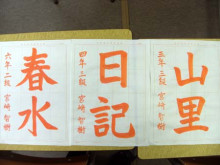 山里
五年三級 宮崎智樹
日記
四年三級 宮崎智樹
春水
六年二級 宮崎智樹